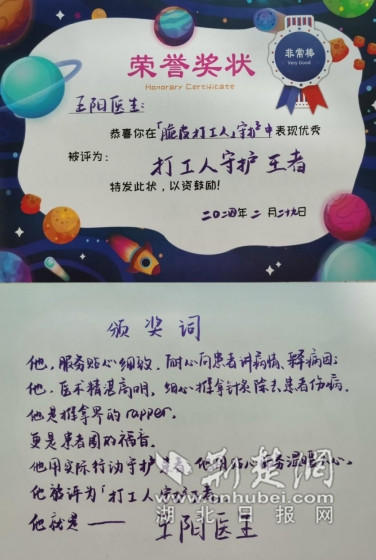 荣誉奖状
Honorary Certificate
非常棒
Very Good
王阳医生:
恭喜你在「脆皮打工人」守护中表现优秀
被评为:
打工人守护王者
特发此状，以资鼓励!
二〇二四年二月二十九日
颁奖词
他，服务贴心细致，耐心向患者讲病情、释病因;
他，医术精湛高明，细心推拿针灸除去患者伤病。
他是推拿界的rapper.
更是患者圈的福音。
他用实际行动守护 他用 服务温暖 心。
他被评为「打工人守 者
他就是——王阳医生
荆楚网
www.cnhubei.com
湖北日报网